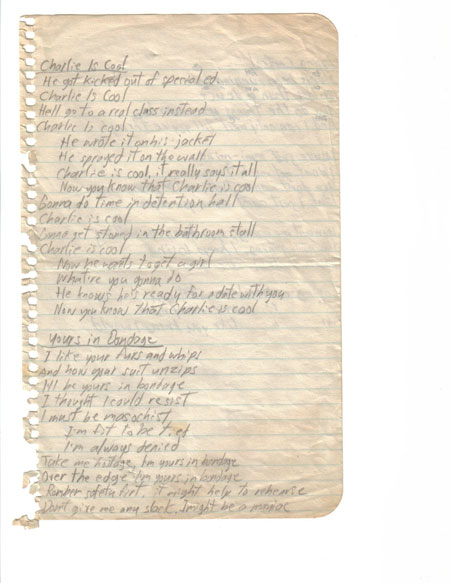 Charlie Is Cool
He got kicked out of special ed
Charlie Is Cool
Hell go to a real class instead
Charlie Is cool
He wrote it on his jacket
He sprayed it on the wall
Charlie is cool, it really says it all
Now you know that Charlie is cool
Gonna do time in detention hall
Charlie is cool
Gonna get stoned in the bathroom stall
Charlie is cool
Now he wants to get a girl
What're you gonna do
He knows he's ready for a date with you
Now you know that Charlie is cool
Yours in Bondage
I like your furs and whips
and how your suit unzips
I'll be yours in bondage
I thought I could resist
I must be masochist
I'm fit to be
I'm always denied
Take me hostage, I'm yours in bondage
Over the edge, I'm yours in bondage
safety first, it might help to rehearse
Don't give me any slack, I might be a maniac